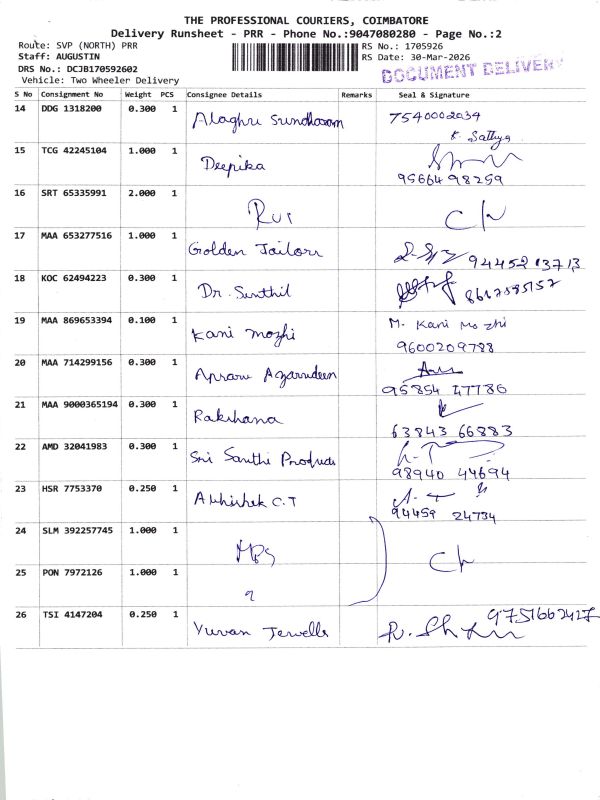 THE PROFESSIONAL COURIERS, COIMBATORE
Delivery Runsheet - PRR - Phone No.:9047080280 - Page No.:2
Route: SVP (NORTH) PRR RS No.: 1705926
Staff: AUGUSTIN RS Date: 30-Mar-2026
DRS No.: DCJB170592602
DOCUMENT DELIVERY
Vehicle: Two Wheeler Delivery
S No Consignment No Weight PCS Consignee Details Remarks Seal & Signature
14 DDG 1318200 0.300 1 Alaghu Sundharam 7540002034
K. Sathya
15 TCG 42245104 1.000 1 Deepika
95664 98259
16 SRT 65335991 2.000 1
17 MAA 653277516 1.000 1 Golden Tailorr 94452 13713
18 KOC 62494223 0.300 1 Dr. Senthil
19 MAA 869653394 0.100 1 Kani mozhi M. Kani Mozhi
9600209788
20 MAA 714299156 0.300 1
95854 47786
21 MAA 9000365194 0.300 1 Rakshana
63843 66883
22 AMD 32041983 0.300 1 Sri Santhi Products
98940 44694
23 HSR 7753370 0.250 1 Abhishek C.T
94459 24734
24 SLM 392257745 1.000 1
25 PON 7972126 1.000 1
26 TSI 4147204 0.250 1 Yuvan Jewells 9751662427